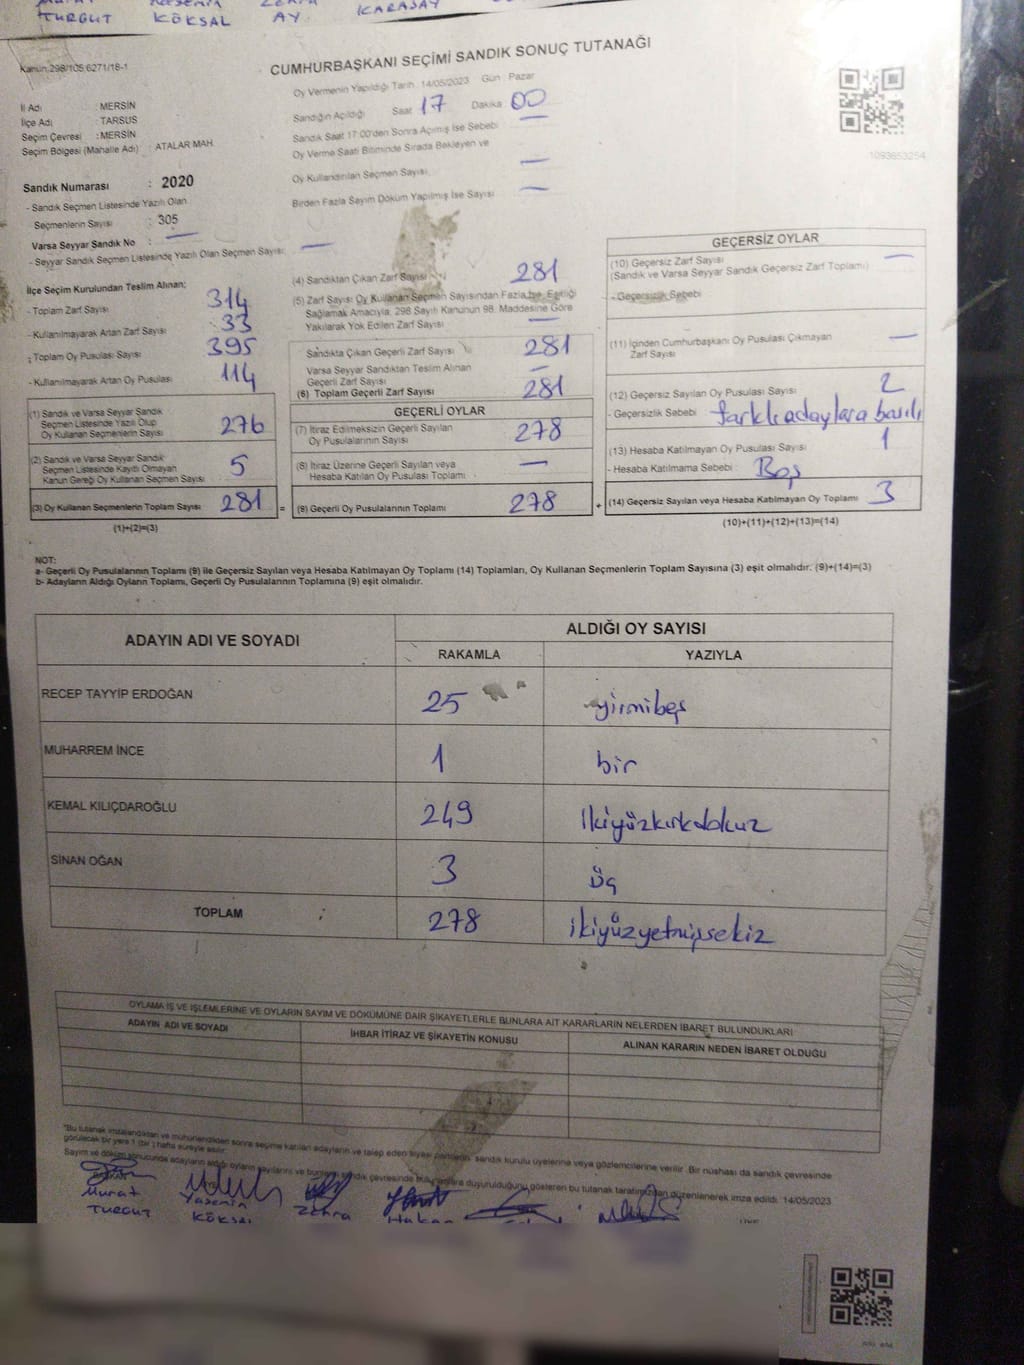 TURGUT KÖKSAL AY. KARASAY
Kanun:298/105:6271/18-1
CUMHURBAŞKANI SEÇİMİ SANDIK SONUÇ TUTANAĞI
Oy Vermenin Yapıldığı Tarih : 14/05/2023 Gün : Pazar
Sandığın Açıldığı Saat 17 Dakika 00
Sandık Saat 17:00'den Sonra Açılmış İse Sebebi —
Oy Verme Saati Bitiminde Sırada Bekleyen ve
Oy Kullandırılan Seçmen Sayısı —
Birden Fazla Sayım Döküm Yapılmış İse Sayısı —
1093653254
İl Adı : MERSİN
İlçe Adı : TARSUS
Seçim Çevresi : MERSİN
Seçim Bölgesi (Mahalle Adı) : ATALAR MAH.
Sandık Numarası : 2020
- Sandık Seçmen Listesinde Yazılı Olan
Seçmenlerin Sayısı : 305
Varsa Seyyar Sandık No : —
- Seyyar Sandık Seçmen Listesinde Yazılı Olan Seçmen Sayısı: —
İlçe Seçim Kurulundan Teslim Alınan;
- Toplam Zarf Sayısı 314
- Kullanılmayarak Artan Zarf Sayısı 33
- Toplam Oy Pusulası Sayısı 395
- Kullanılmayarak Artan Oy Pusulası 114
(1) Sandık ve Varsa Seyyar Sandık
Seçmen Listesinde Yazılı Olup
Oy Kullanan Seçmenlerin Sayısı 276
(2) Sandık ve Varsa Seyyar Sandık
Seçmen Listesinde Kayıtlı Olmayan
Kanun Gereği Oy Kullanan Seçmen Sayısı 5
(3) Oy Kullanan Seçmenlerin Toplam Sayısı 281 =
(1)+(2)=(3)
(4) Sandıktan Çıkan Zarf Sayısı 281
(5) Zarf Sayısı Oy Kullanan Seçmen Sayısından Fazla İse, Eşitliği
Sağlamak Amacıyla, 298 Sayılı Kanunun 98. Maddesine Göre
Yakılarak Yok Edilen Zarf Sayısı —
Sandıkta Çıkan Geçerli Zarf Sayısı 281
Varsa Seyyar Sandıktan Teslim Alınan
Geçerli Zarf Sayısı —
(6) Toplam Geçerli Zarf Sayısı 281
GEÇERLİ OYLAR
(7) İtiraz Edilmeksizin Geçerli Sayılan
Oy Pusulalarının Sayısı 278
(8) İtiraz Üzerine Geçerli Sayılan veya
Hesaba Katılan Oy Pusulası Toplamı —
(9) Geçerli Oy Pusulalarının Toplamı 278 +
GEÇERSİZ OYLAR
(10) Geçersiz Zarf Sayısı —
(Sandık ve Varsa Seyyar Sandık Geçersiz Zarf Toplamı)
- Geçersizlik Sebebi
(11) İçinden Cumhurbaşkanı Oy Pusulası Çıkmayan
Zarf Sayısı —
(12) Geçersiz Sayılan Oy Pusulası Sayısı 2
- Geçersizlik Sebebi farklı adaylara basılı
(13) Hesaba Katılmayan Oy Pusulası Sayısı 1
- Hesaba Katılmama Sebebi : Boş
(14) Geçersiz Sayılan veya Hesaba Katılmayan Oy Toplamı 3
(10)+(11)+(12)+(13)=(14)
NOT:
a- Geçerli Oy Pusulalarının Toplamı (9) ile Geçersiz Sayılan veya Hesaba Katılmayan Oy Toplamı (14) Toplamları, Oy Kullanan Seçmenlerin Toplam Sayısına (3) eşit olmalıdır. (9)+(14)=(3)
b- Adayların Aldığı Oyların Toplamı, Geçerli Oy Pusulalarının Toplamına (9) eşit olmalıdır.
ADAYIN ADI VE SOYADI ALDIĞI OY SAYISI
RAKAMLA YAZIYLA
RECEP TAYYİP ERDOĞAN 25 yirmibeş
MUHARREM İNCE 1 bir
KEMAL KILIÇDAROĞLU 249 ikiyüzkırkdokuz
SİNAN OĞAN 3 üç
TOPLAM 278 ikiyüzyetmişsekiz
OYLAMA İŞ VE İŞLEMLERİNE VE OYLARIN SAYIM VE DÖKÜMÜNE DAİR ŞİKAYETLERLE BUNLARA AİT KARARLARIN NELERDEN İBARET BULUNDUKLARI
ADAYIN ADI VE SOYADI İHBAR İTİRAZ VE ŞİKAYETİN KONUSU ALINAN KARARIN NEDEN İBARET OLDUĞU
"Bu tutanak imzalandıktan ve mühürlendikten sonra seçime katılan adayların ve talep eden siyasi partilerin sandık kurulu üyelerine veya gözlemcilerine verilir. Bir nüshası da sandık çevresinde
görülecek bir yere 1 (bir) hafta süreyle asılır.
Sayım ve döküm sonucunda adayların aldığı oyların sayılarını ve bunların sandık çevresinde duyurulduğunu gösteren bu tutanak tarafımızdan düzenlenerek imza edildi. 14/05/2023
Murat Yasemin Zehra Hakan
TURGUT KÖKSAL